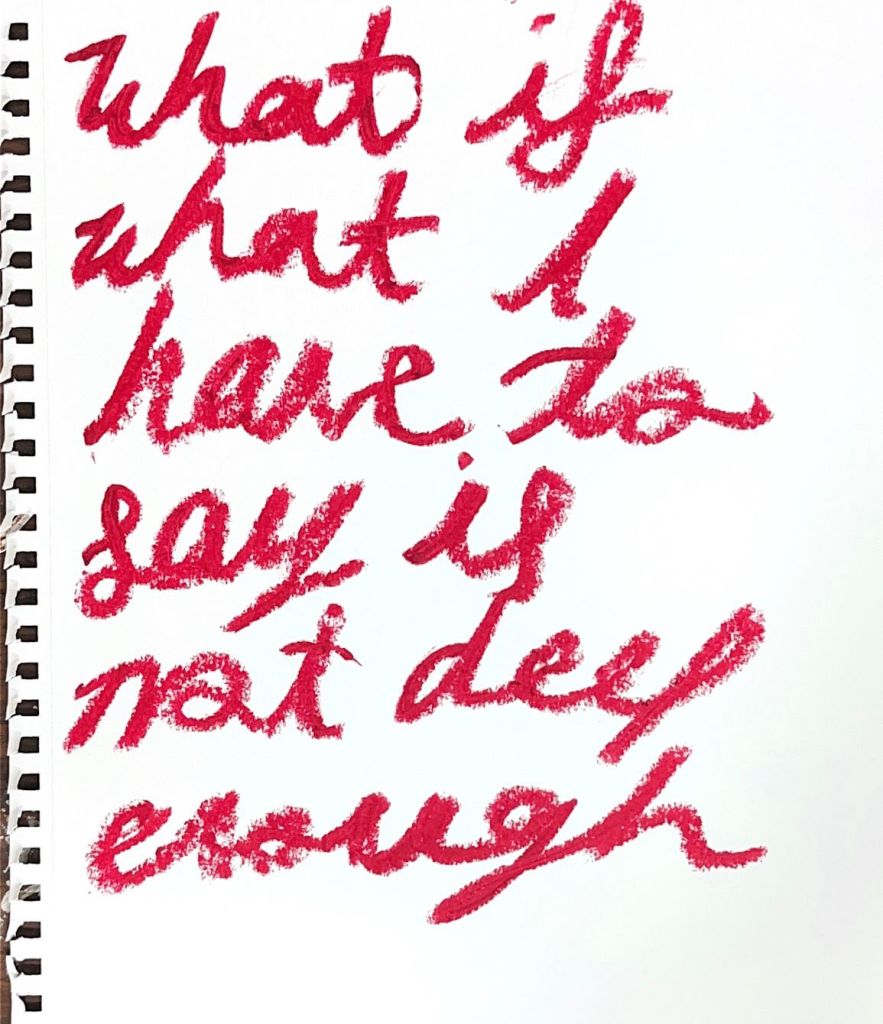 what if
what I
have to
say is
not deep
enough